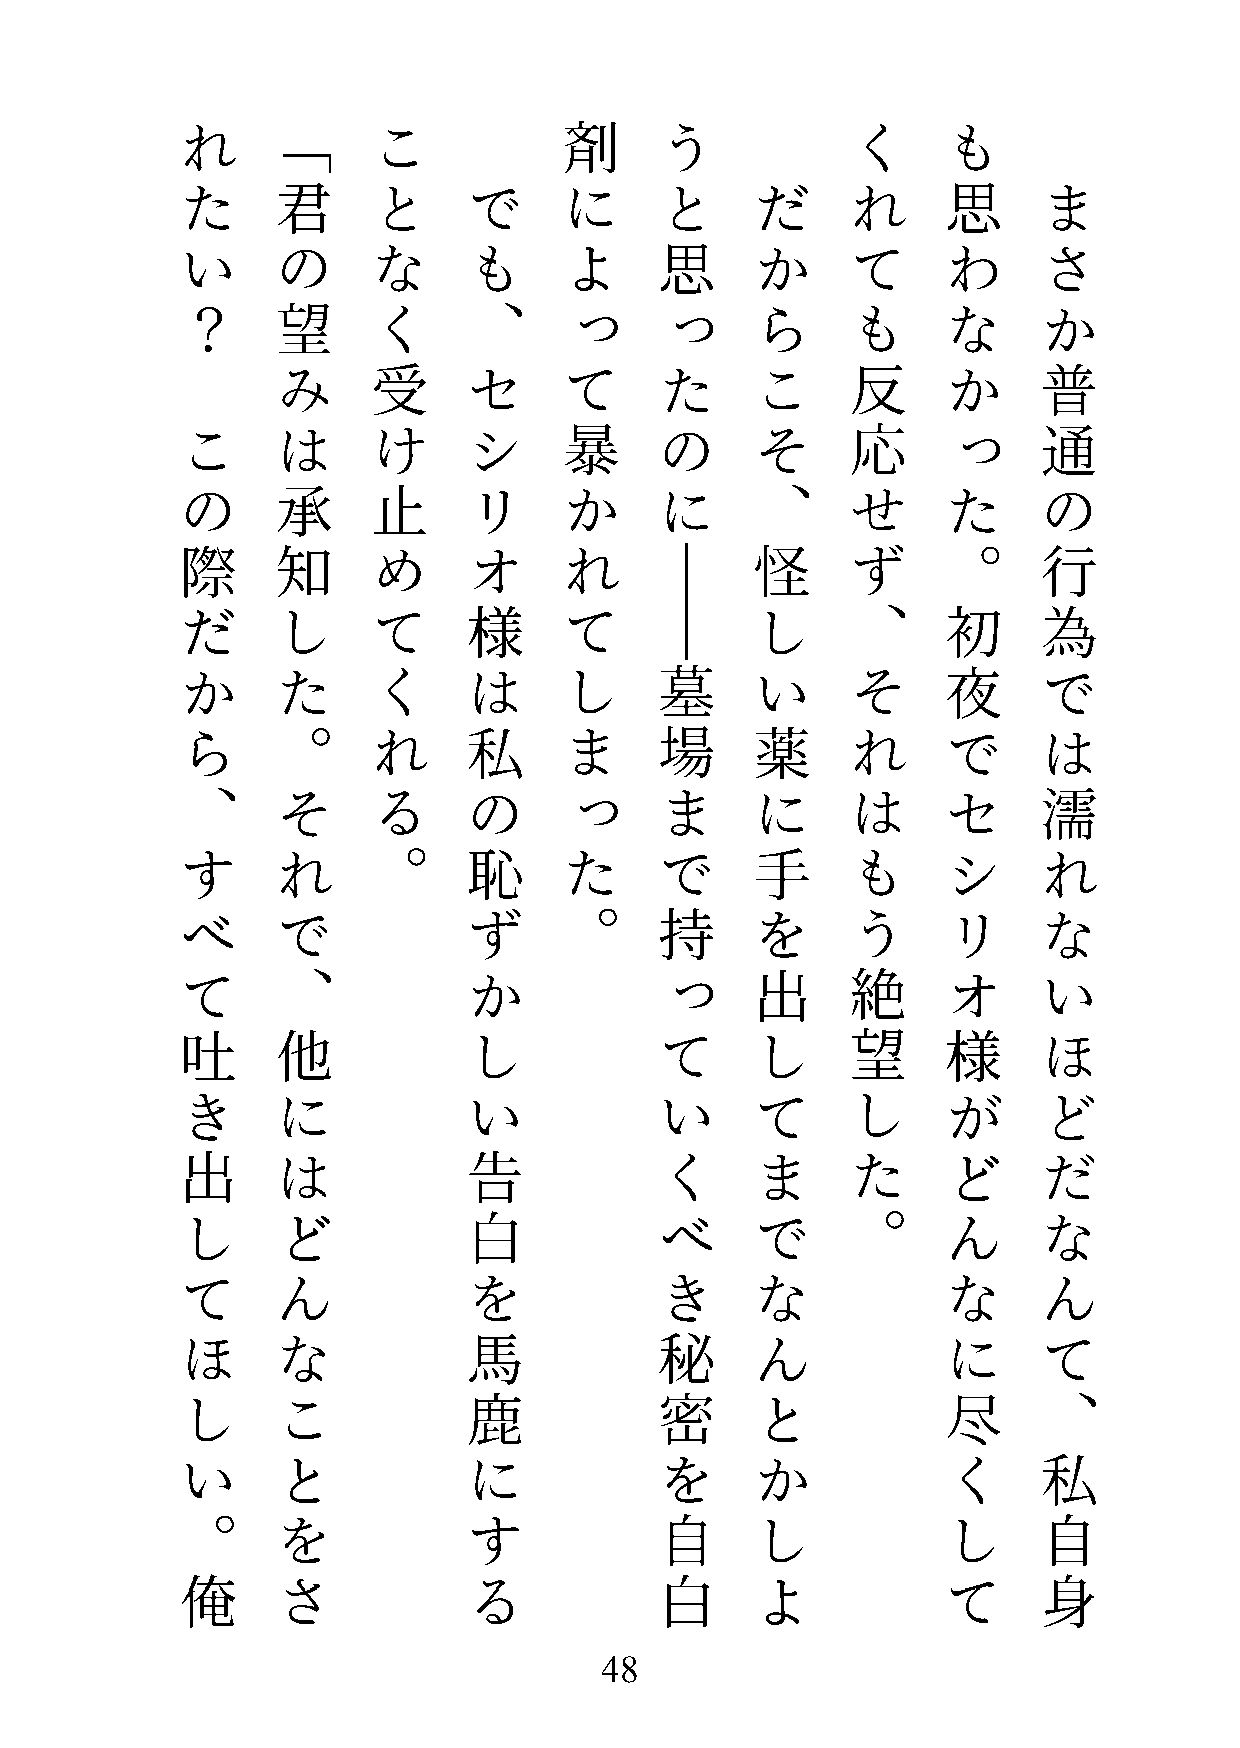 まさか普通の行為では濡れないほどだなんて、私自身
も思わなかった。初夜でセシリオ様がどんなに尽くして
くれても反応せず、それはもう絶望した。
　だからこそ、怪しい薬に手を出してまでなんとかしよ
うと思ったのに――墓場まで持っていくべき秘密を自白
剤によって暴かれてしまった。
　でも、セシリオ様は私の恥ずかしい告白を馬鹿にする
ことなく受け止めてくれる。
「君の望みは承知した。それで、他にはどんなことをさ
れたい？　この際だから、すべて吐き出してほしい。俺
48